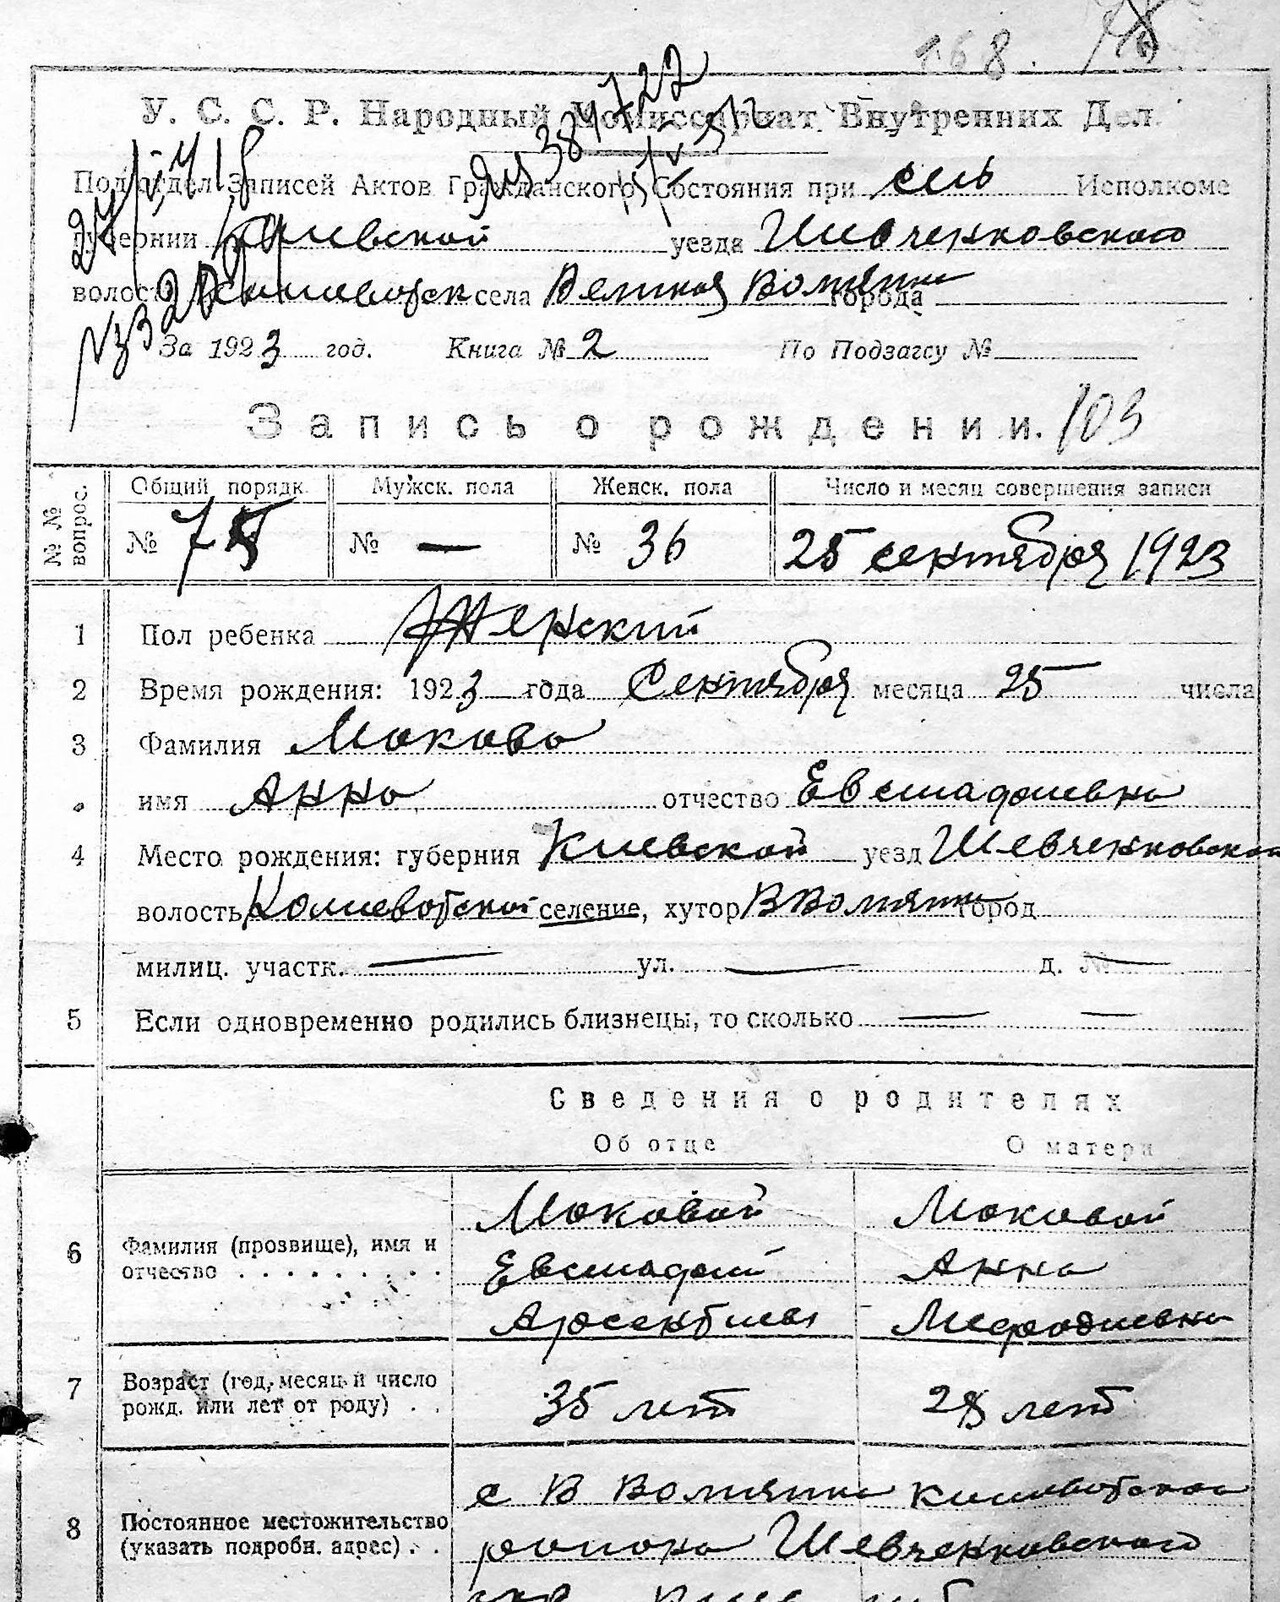 168. 78
У. С. С. Р. Народный Комиссариат Внутренних Дел.
Подотдел Записей Актов Гражданского Состояния при сель Исполкоме
губернии Киевской уезда Шевченковского
волости села Великая Волнянка города
За 1923 год. Книга № 2 По Подзагсу №
Запись о рождении. 103
№ № вопрос. Общий порядк. Мужск. пола Женск. пола Число и месяц совершения записи
№ 75 № — № 36 25 сентября 1923
1 Пол ребенка Женский
2 Время рождения: 1923 года Сентября месяца 25 числа
3 Фамилия Мокова
имя Анна отчество Евстафиевна
4 Место рождения: губерния Киевской уезд Шевченковской
волость селение, хутор В Волнянка город
милиц. участк. — ул. — д. № —
5 Если одновременно родились близнецы, то сколько — —
Сведения о родителях
Об отце О матери
6 Фамилия (прозвище), имя и отчество . . . . . . . . .
Моковой Моковой
Евстафий Анна
Арсентиев Мефодиевна
7 Возраст (год, месяц и число рожд. или лет от роду) . .
35 лет 28 лет
8 Постоянное местожительство (указать подробн. адрес) . .
с В Волнянка
района Шевченковского
окр. Киев губ